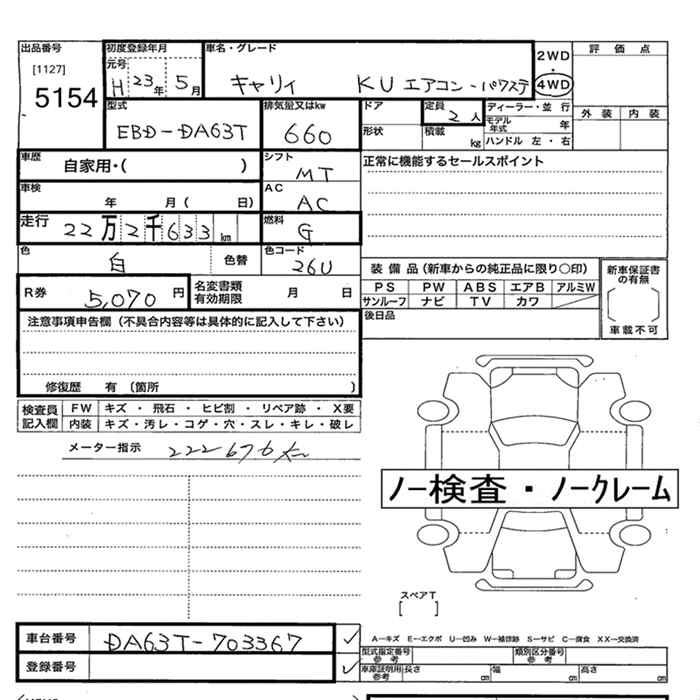 出品番号 初度登録年月 車名・グレード 評価点
[1127] 元号 H 23年 5月 キャリィ KU エアコン・パワステ 2WD・4WD
5154
型式 EBD-DA63T 排気量又はkw 660 ドア 定員 2人 ディーラー・並行 外装 内装
形状 積載 kg モデル年式 年
ハンドル 左・右
車歴 自家用・( ) シフト MT 正常に機能するセールスポイント
車検 年 月( 日) AC AC
走行 22万2千633km 燃料 G
色 白 色替 色コード 26U
R券 5,070円 名変書類有効期限 月 日 装備品(新車からの純正品に限り○印) 新車保証書の有無
PS PW ABS エアB アルミW
サンルーフ ナビ TV カワ 車載不可
後日品
注意事項申告欄(不具合内容等は具体的に記入して下さい)
修復歴 有(箇所 )
検査員記入欄 FW キズ・飛石・ヒビ割・リペア跡・X要
内装 キズ・汚レ・コゲ・穴・スレ・キレ・破レ
メーター指示 222676
ノー検査・ノークレーム
スペアT
[ ]
車台番号 DA63T-703367 ✓ A-キズ E-エクボ U-凹み W-補修跡 S-サビ C-腐食 XX-交換済
型式指定番号参考 類別区分番号参考
登録番号 ✓ 車庫証明用参考 長さ cm 幅 cm 高さ cm